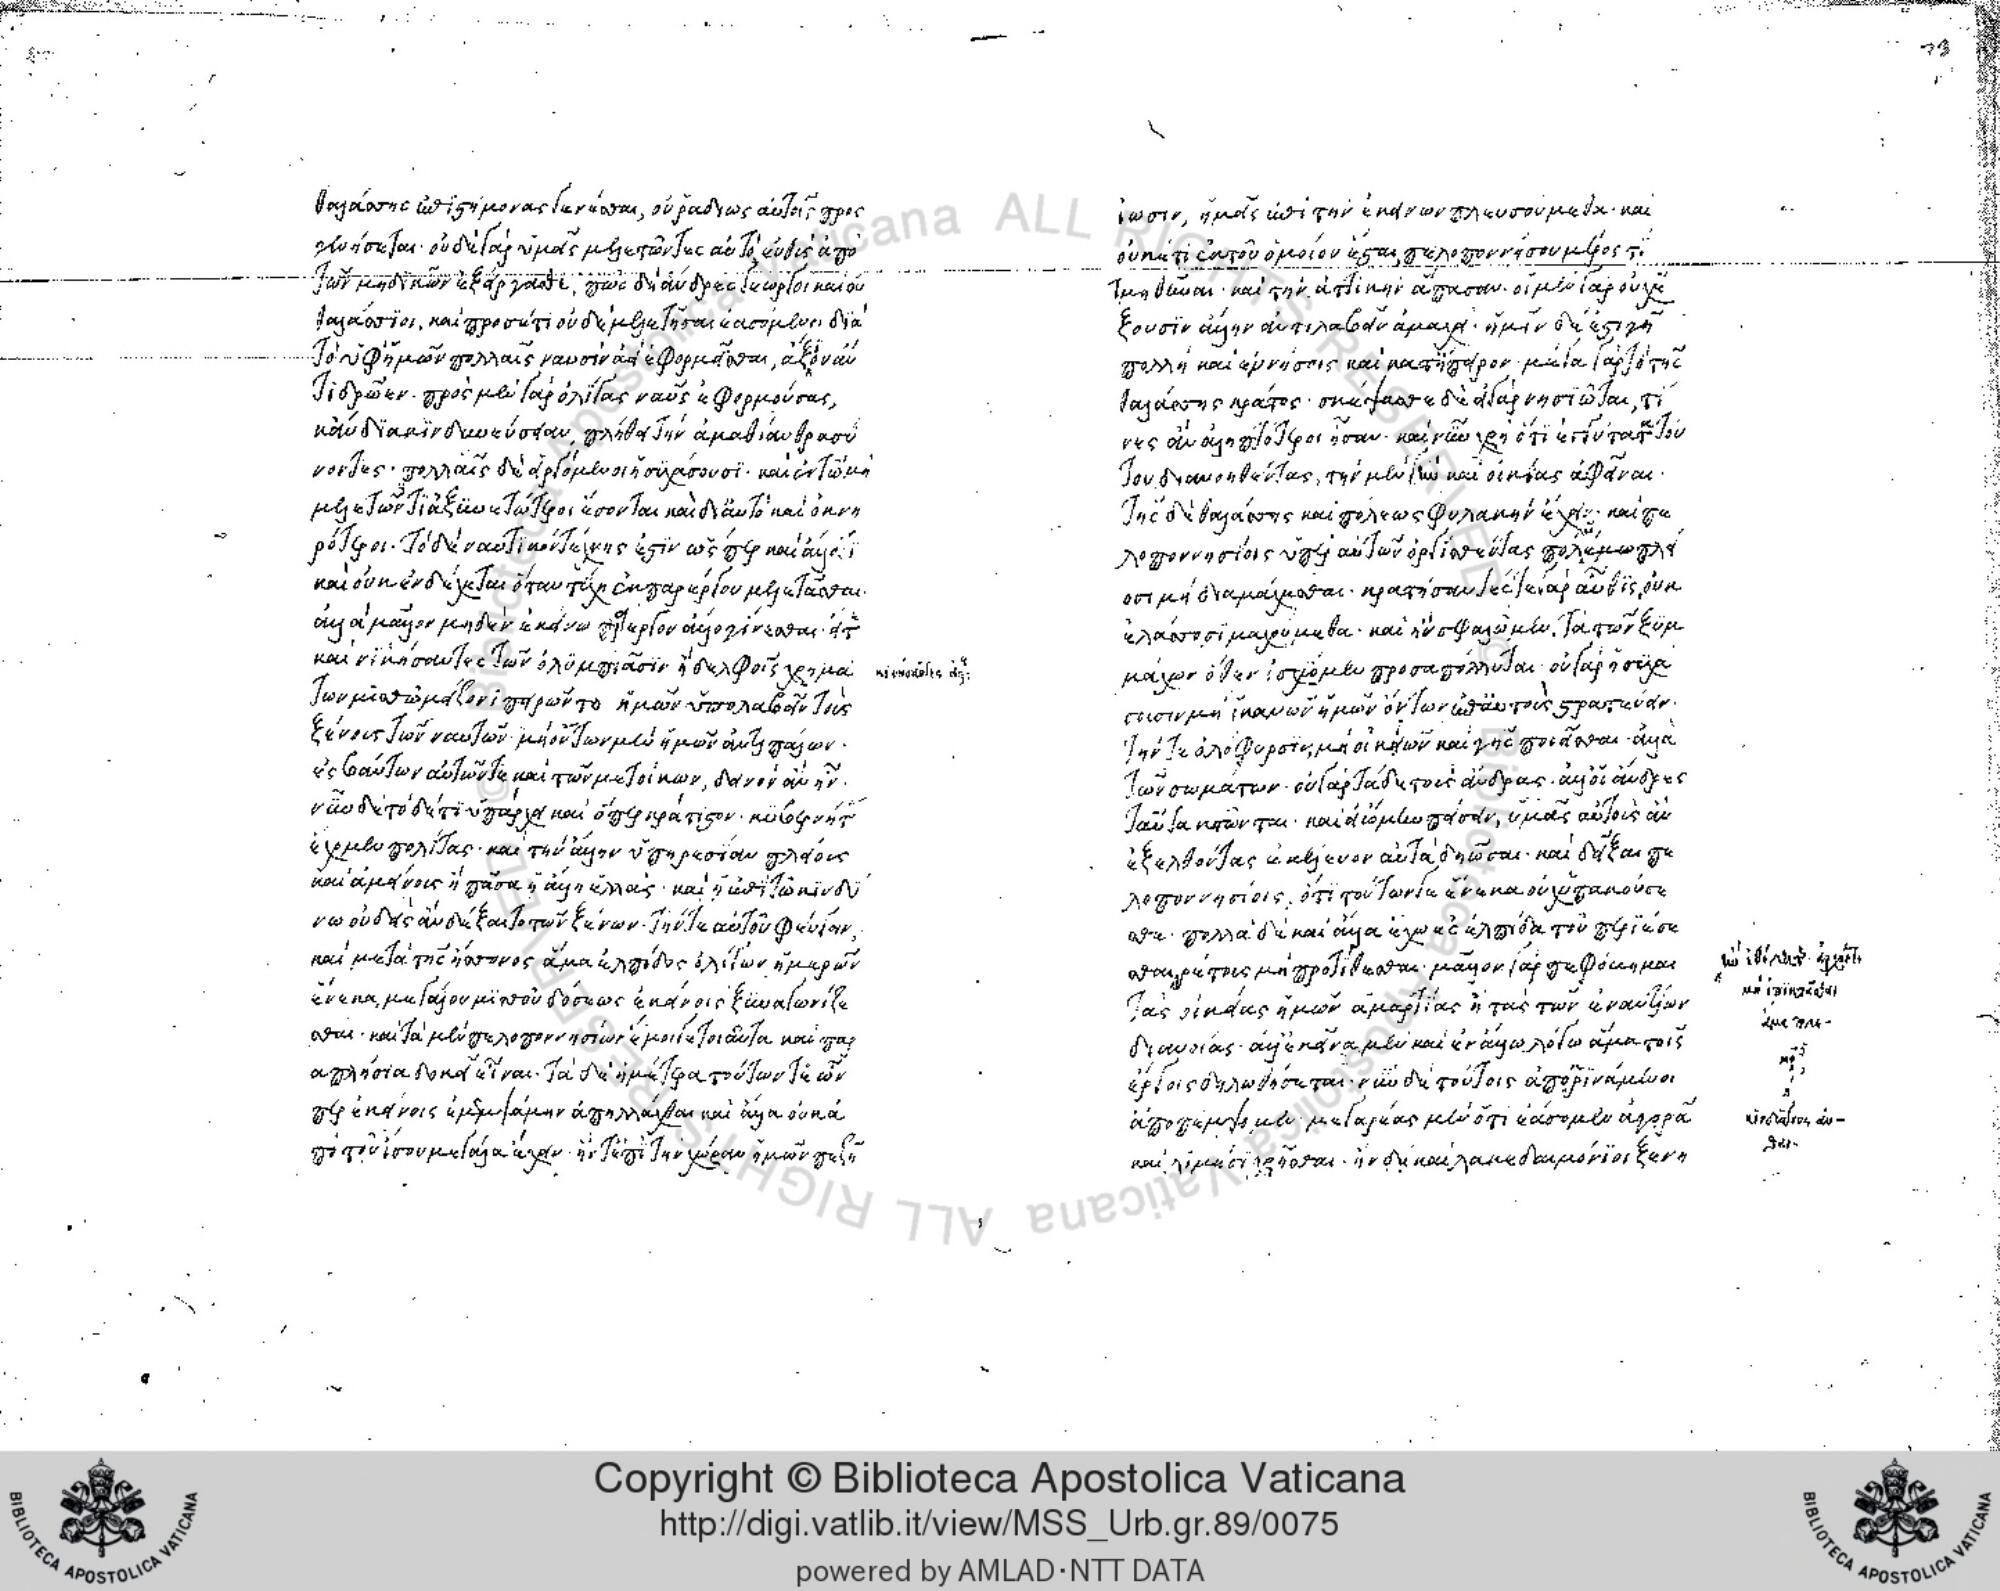 θαλάσσης ἐπιστήμονας γενέσθαι, οὐ ῥαδίως αὐτοῖς προς
γενήσεται· οὐδὲ γὰρ ὑμεῖς μελετῶντες αὐτὸ εὐθὺς ἀπὸ
τῶν μηδικῶν ἐξείργασθέ· πῶς δὴ ἄνδρες γεωργοὶ καὶ οὐ
θαλάσσιοι, καὶ προσέτι οὐδὲ μελετῆσαι ἐασόμενοι διὰ
τὸ ὑφ' ἡμῶν πολλαῖς ναυσὶν ἀεὶ ἐφορμεῖσθαι, ἄξιον ἄν
τι δρῶεν· πρὸς μὲν γὰρ ὀλίγας ναῦς ἐφορμούσας,
κἂν διακινδυνεύσειαν πλήθει τὴν ἀμαθίαν θρασύ
νοντες· πολλαῖς δὲ εἰργόμενοι ἡσυχάσουσι· καὶ ἐν τῷ μὴ
μελετῶντι ἀξυνετώτεροι ἔσονται καὶ δι' αὐτὸ καὶ ὀκνη
ρότεροι· τὸ δὲ ναυτικὸν τέχνης ἐστὶν ὥσπερ καὶ ἄλλό τι
καὶ οὐκ ἐνδέχεται ὅταν τύχῃ ἐκ παρέργου μελετᾶσθαι·
ἀλλὰ μᾶλλον μηδὲν ἐκείνῳ πάρεργον ἄλλο γίνεσθαι· εἴ τε
καὶ κινήσαντες τῶν ὀλυμπίασιν ἢ δελφοῖς χρημά
των μισθῷ μείζονι πειρῷντο ἡμῶν ὑπολαβεῖν τοὺς
ξένους τῶν ναυτῶν· μὴ ὄντων μὲν ἡμῶν ἀντιπάλων·
ἐσβάντων αὐτῶν τε καὶ τῶν μετοίκων, δεινὸν ἂν ἦν·
νῦν δὲ τό δέ τι ὑπάρχει καὶ ὅπερ κράτιστον· κυβερνήτας
ἔχομεν πολίτας· καὶ τὴν ἄλλην ὑπηρεσίαν πλείους
καὶ ἀμείνους ἢ πᾶσα ἡ ἄλλη ἑλλάς· καὶ ἐπὶ τῷ κινδύ
νῳ οὐδεὶς ἂν δέξαιτο τῶν ξένων· τήν τε αὑτοῦ φεύγειν,
καὶ μετὰ τῆς ἥσσονος ἅμα ἐλπίδος ὀλίγων ἡμερῶν
ἕνεκα μεγάλου μισθοῦ δόσεως ἐκείνοις ξυναγωνίζε
σθαι· καὶ τὰ μὲν πελοποννησίων ἔμοιγε τοιαῦτα καὶ παρ
απλήσια δοκεῖ εἶναι· τὰ δὲ ἡμέτερα τούτων τε ὧν
περ ἐκείνοις ἐμεμψάμην ἀπηλλάχθαι καὶ ἄλλα οὐκ ἀ
πὸ τοῦ ἴσου μεγάλα ἔχειν· ἤν τε ἐπὶ τὴν χώραν ἡμῶν πεζῇ
ἴωσιν, ἡμεῖς ἐπὶ τὴν ἐκείνων πλευσούμεθα· καὶ
οὐκέτι ἐκ τοῦ ὁμοίου ἔσται, πελοποννήσου μέρος τι
τμηθῆναι· καὶ τὴν ἀττικὴν ἅπασαν· οἱ μὲν γὰρ οὐχ ἕ
ξουσιν ἄλλην ἀντιλαβεῖν ἀμαχεί· ἡμῖν δέ ἐστι γῆ
πολλὴ καὶ ἐν νήσοις καὶ κατ' ἤπειρον· μέγα γὰρ τὸ τῆς
θαλάσσης κράτος· σκέψασθε δὲ εἰ γὰρ νησιῶται, τί
νες ἂν ἀληπτότεροι ἦσαν· καὶ νῦν χρὴ ὅτι ἐγγύτατα τού
του διανοηθέντας, τὴν μὲν γῆν καὶ οἰκίας ἀφεῖναι·
τῆς δὲ θαλάσσης καὶ πόλεως φυλακὴν ἔχειν· καὶ πε
λοποννησίοις ὑπὲρ αὐτῶν ὀργισθέντας πολλῷ πλεί
οσι μὴ διαμάχεσθαι· κρατήσαντές τε γὰρ αὖθις οὐκ
ἐλάσσοσι μαχούμεθα· καὶ ἢν σφαλῶμεν, τὰ τῶν ξυμ
μάχων ὅθεν ἰσχύομεν προσαπόλλυται· οὐ γὰρ ἡσυχά
σουσι μὴ ἱκανῶν ἡμῶν ὄντων ἐπ' αὐτοὺς στρατεύειν·
τήν τε ὀλόφυρσιν, μὴ οἰκιῶν καὶ γῆς ποιεῖσθαι· ἀλλὰ
τῶν σωμάτων· οὐ γὰρ τάδε τοὺς ἄνδρας· ἀλλ' οἱ ἄνδρες
ταῦτα κτῶνται· καὶ εἰ ᾤμην πείσειν, ὑμᾶς αὐτοὺς ἂν
ἐξελθόντας ἐκέλευον αὐτὰ δῃῶσαι· καὶ δεῖξαι πε
λοποννησίοις, ὅτι τούτων γε ἕνεκα οὐχ ὑπακούσε
σθε· πολλὰ δὲ καὶ ἄλλα ἔχω ἐς ἐλπίδα τοῦ περιέσε
σθαι
τὰς οἰκείας ἡμῶν ἁμαρτίας ἢ τὰς τῶν ἐναντίων
διανοίας· ἀλλ' ἐκεῖνα μὲν καὶ ἐν ἄλλῳ λόγῳ ἅμα τοῖς
ἔργοις δηλωθήσεται· νῦν δὲ τούτοις ἀποκρινάμενοι
ἀποπέμψωμεν· μεγαρέας μὲν ὅτι ἐάσομεν ἀγορᾷ
καὶ λιμέσι χρῆσθαι· ἢν δὲ καὶ λακεδαιμόνιοι ξενη
Copyright © Biblioteca Apostolica Vaticana
http://digi.vatlib.it/view/MSS_Urb.gr.89/0075
powered by AMLAD·NTT DATA
BIBLIOTECA APOSTOLICA VATICANA
BIBLIOTECA APOSTOLICA VATICANA